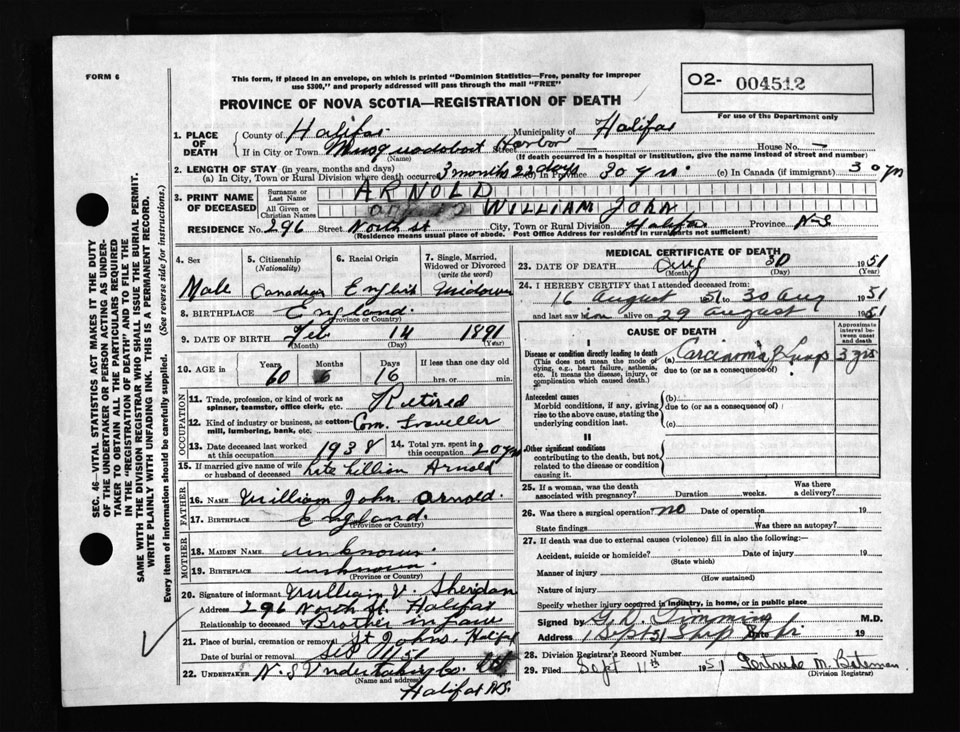 FORM 6
This form, if placed in an envelope, on which is printed "Dominion Statistics—Free, penalty for improper
use $300," and properly addressed will pass through the mail "FREE"
O2- 004512
For use of the Department only
PROVINCE OF NOVA SCOTIA—REGISTRATION OF DEATH
1. PLACE OF DEATH
County of Halifax Municipality of Halifax
If in City or Town Musquodoboit Harbor Street — House No. —
(Name) (If death occurred in a hospital or institution, give the name instead of street and number)
2. LENGTH OF STAY (in years, months and days)
(a) In City, Town or Rural Division where death occurred 3 months 22 days (b) In Province 30 yrs. (c) In Canada (if immigrant) 30 yrs
3. PRINT NAME OF DECEASED
Surname or Last Name ARNOLD
All Given or Christian Names WILLIAM JOHN
RESIDENCE No. 296 Street North St City, Town or Rural Division Halifax Province N-S
(Residence means usual place of abode. Post Office Address for residents in rural parts not sufficient)
4. Sex Male
5. Citizenship (Nationality) Canadian
6. Racial Origin English
7. Single, Married, Widowed or Divorced (write the word) Widower
8. BIRTHPLACE England.
(Province or Country)
9. DATE OF BIRTH Feb 14 1891
(Month) (Day) (Year)
10. AGE Years Months Days If less than one day old
60 6 16 hrs. or min.
OCCUPATION
11. Trade, profession, or kind of work as spinner, teamster, office clerk, etc. Retired
12. Kind of industry or business, as cotton-mill, lumbering, bank, etc. Com. Traveller
13. Date deceased last worked at this occupation 1938
14. Total yrs. spent in this occupation 20 yrs
15. If married give name of wife or husband of deceased Late Lillian Arnold
FATHER
16. NAME William John Arnold.
17. BIRTHPLACE England.
(Province or Country)
MOTHER
18. MAIDEN NAME unknown
19. BIRTHPLACE unknown.
(Province or Country)
20. Signature of informant William V. Sheridan
Address 296 North St. Halifax
Relationship to deceased Brother in law
21. Place of burial, cremation or removal St Johns. Halifax
Date of burial or removal Sep 1/51
22. UNDERTAKER N.S Undertaking Co. Ltd
(Name and address)
Halifax N.S.
MEDICAL CERTIFICATE OF DEATH
23. DATE OF DEATH Aug 30 1951
(Month) (Day) (Year)
24. I HEREBY CERTIFY that I attended deceased from:
16 August 1951 to 30 Aug 1951
and last saw him alive on 29 August 1951
CAUSE OF DEATH
Approximate interval between onset and death
I
Disease or condition directly leading to death
(This does not mean the mode of dying, e.g., heart failure, asthenia, etc. It means the disease, injury, or complication which caused death.)
(a) Carcinoma R Lungs 3 yrs
due to (or as a consequence of)
Antecedent causes
Morbid conditions, if any, giving rise to the above cause, stating the underlying condition last.
(b)
due to (or as a consequence of)
(c)
II
Other significant conditions
contributing to the death, but not related to the disease or condition causing it.
25. If a woman, was the death associated with pregnancy? Duration weeks. Was there a delivery?
26. Was there a surgical operation? no Date of operation 19
State findings Was there an autopsy?
27. If death was due to external causes (violence) fill in also the following:—
Accident, suicide or homicide? Date of injury 19
(State which)
Manner of injury
(How sustained)
Nature of injury
Specify whether injury occurred in industry, in home, or in public place
Signed by M.D.
Address Date 19
28. Division Registrar's Record Number
29. Filed Sept 11th 1951 Gertrude M. Bateman
(Division Registrar)
SEC. 46—VITAL STATISTICS ACT MAKES IT THE DUTY
OF THE UNDERTAKER OR PERSON ACTING AS UNDER-
TAKER TO OBTAIN ALL THE PARTICULARS REQUIRED
IN THE "REGISTRATION OF DEATH" AND TO FILE THE
SAME WITH THE DIVISION REGISTRAR WHO SHALL ISSUE THE BURIAL PERMIT.
WRITE PLAINLY WITH UNFADING INK. THIS IS A PERMANENT RECORD.
Every item of information should be carefully supplied. (See reverse side for instructions.)